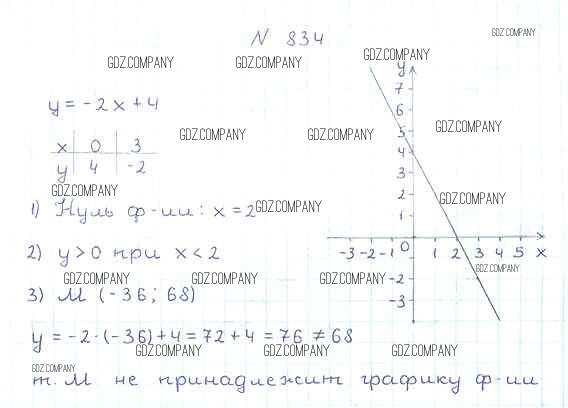 N 834
GDZ.COMPANY
GDZ.COMPANY GDZ.COMPANY GDZ.COMPANY
y = -2x + 4
x 0 3
y 4 -2
GDZ.COMPANY GDZ.COMPANY GDZ.COMPANY
GDZ.COMPANY
1) Нуль ф-ии: x = 2
GDZ.COMPANY GDZ.COMPANY
2) y > 0 при x < 2
GDZ.COMPANY GDZ.COMPANY GDZ.COMPANY GDZ.COMPANY
3) М (-36; 68)
y = -2·(-36)+4 = 72+4 = 76 ≠ 68
GDZ.COMPANY GDZ.COMPANY GDZ.COMPANY
GDZ.COMPANY
т. М не принадлежит графику ф-ии
y
7
6
5
4
3
2
1
-3 -2 -1 0 1 2 3 4 5 x
-2
-3